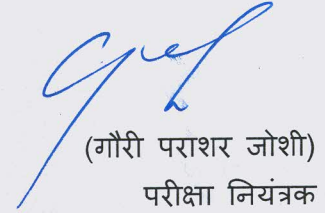 (गौरी पराशर जोशी)
परीक्षा नियंत्रक